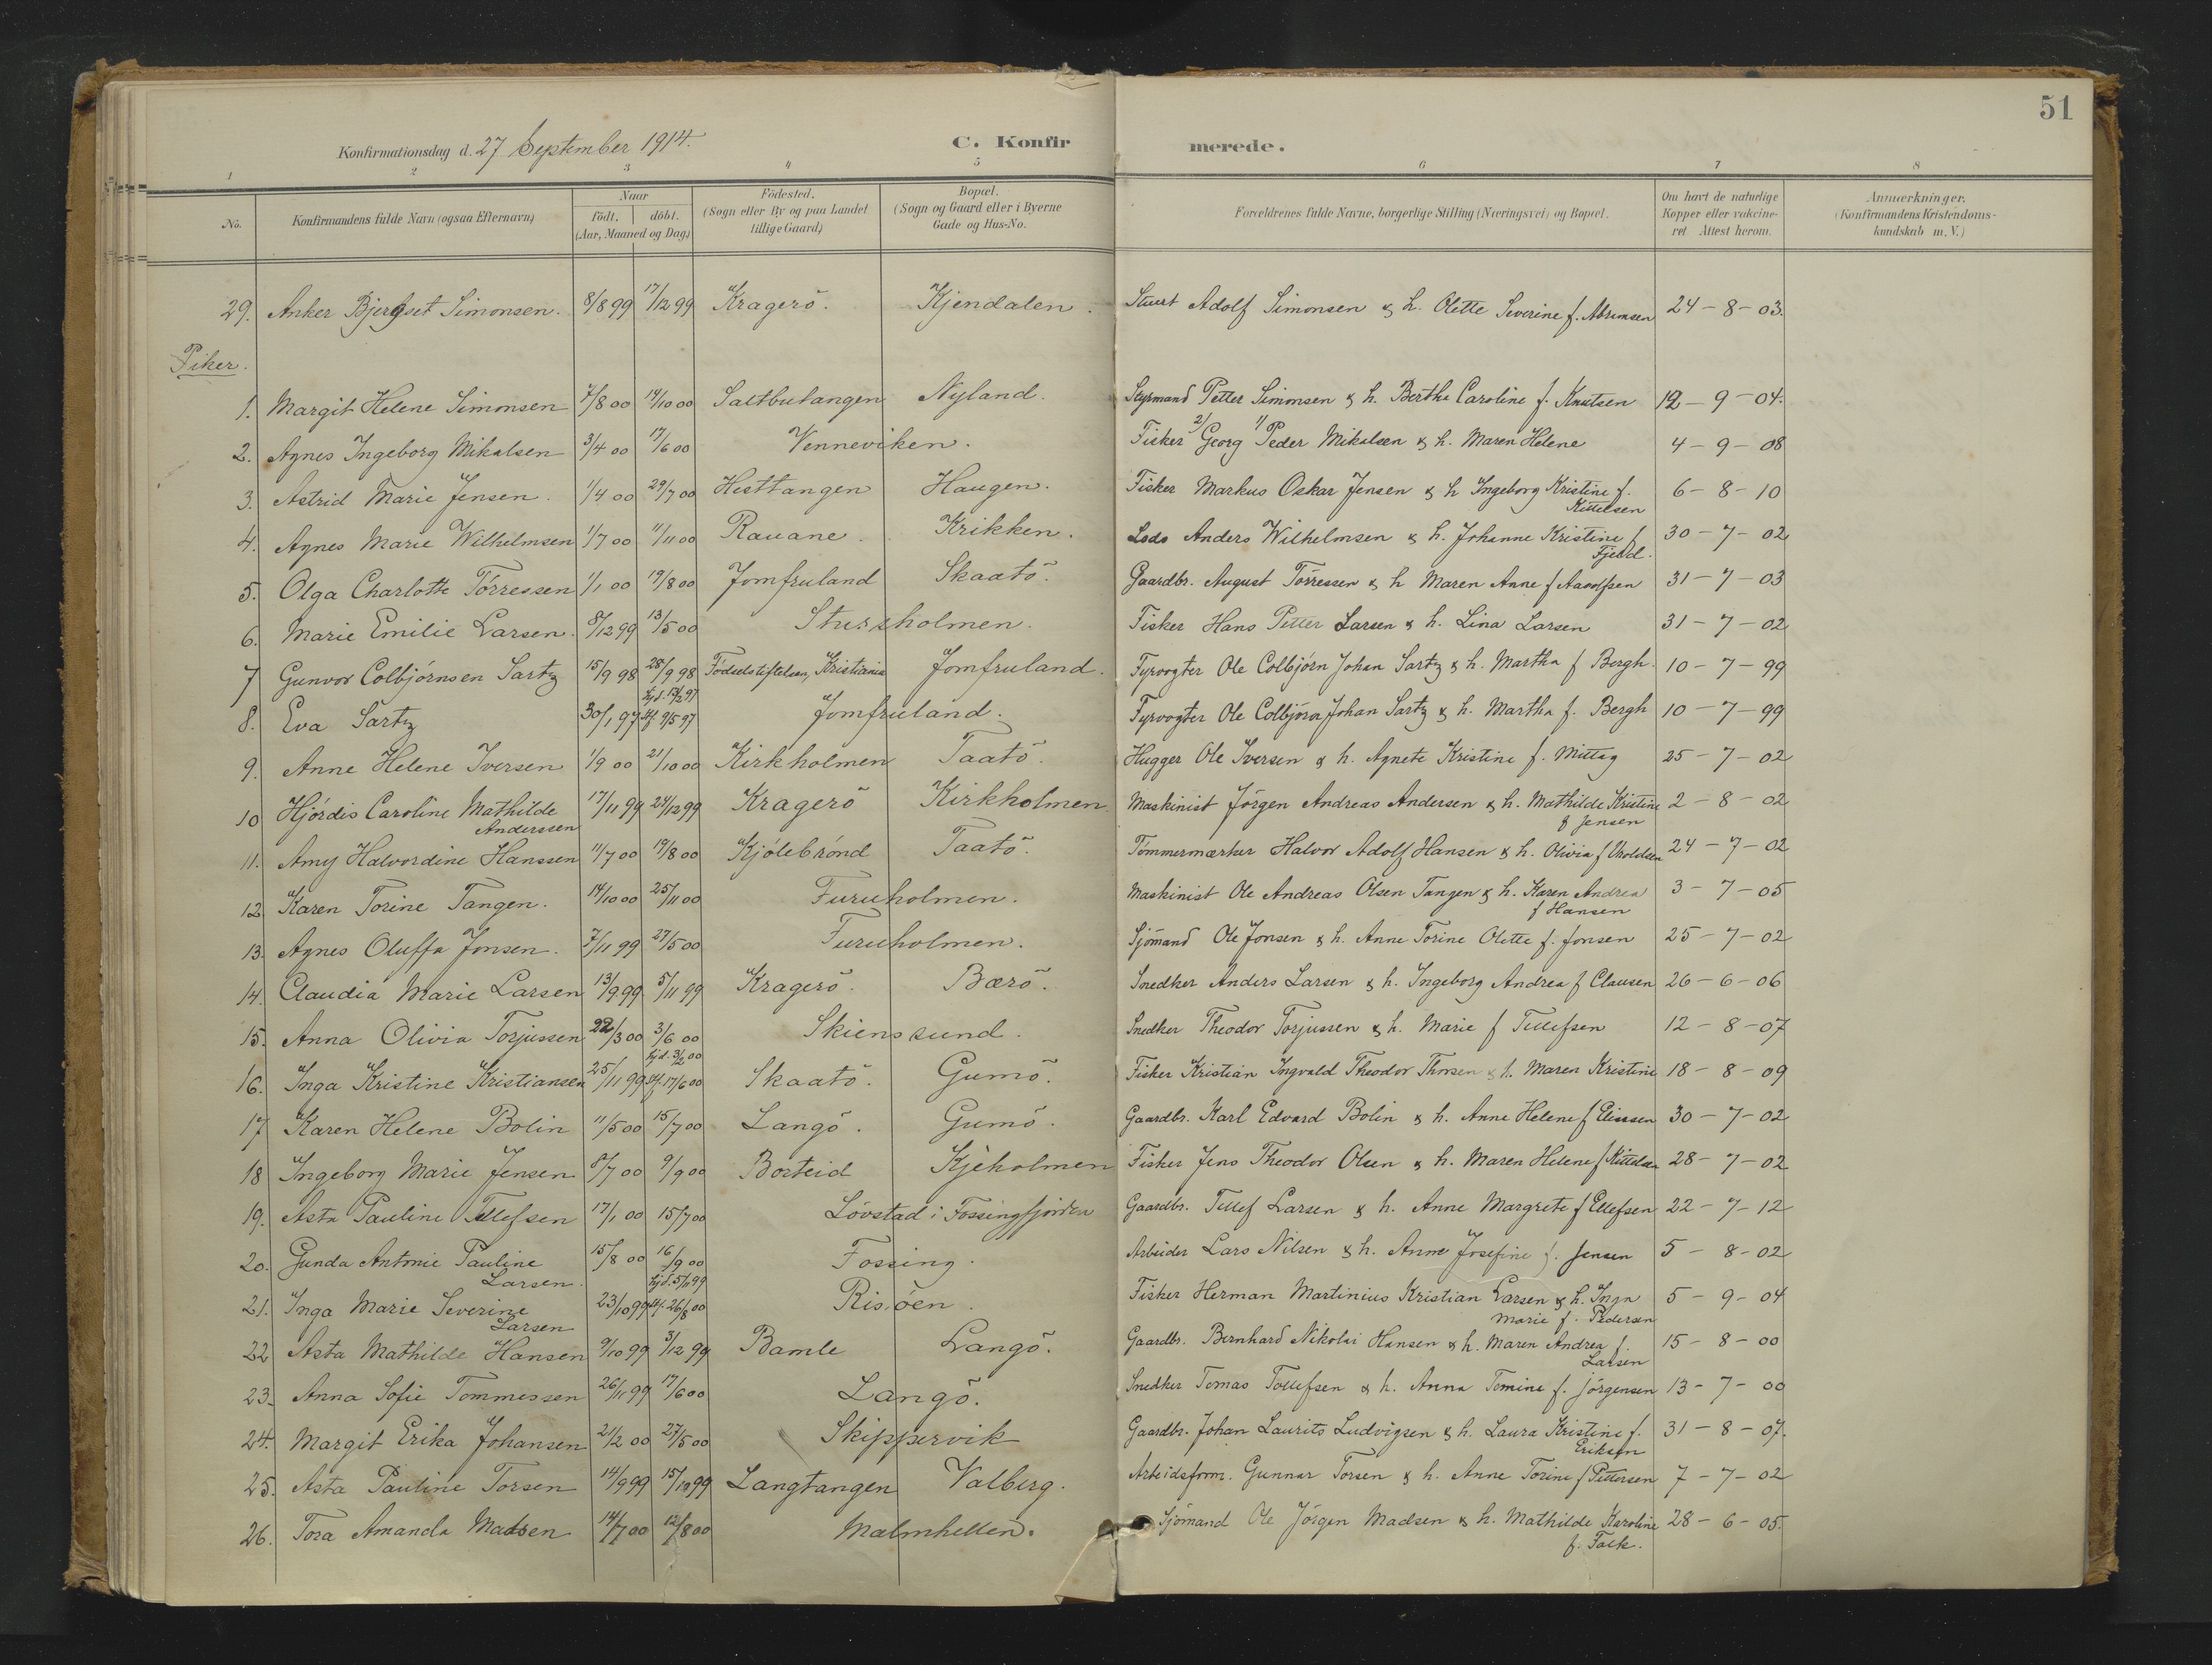 51
Konfirmationsdag d. 27 September 1914.
C. Konfir merede.
1 2 3 4 5 6 7 8
No. Konfirmandens fulde Navn (ogsaa Efternavn) Naar födt. döbt. (Aar, Maaned og Dag) Födested. (Sogn eller By og paa Landet tillige Gaard) Bopæl. (Sogn og Gaard eller i Byerne Gade og Hus-No. Forældrenes fulde Navne, borgerlige Stilling (Næringsvei) og Bopæl. Om havt de naturlige Kopper eller vakcineret Attest herom. Anmærkninger. (Konfirmandens Kristendomskundskab m. V.)
29. Anker Bjergset Simonsen. 8/8 99 17/12 99 Kragerö. Kjendalen. Stuert Adolf Simonsen & h. Olette Severine f. 24-8-03.
Piker.
1. Margit Helene Simonsen 7/8 00 14/10 00 Saltbutangen Nyland. Styrmand Petter Simonsen & h. Berthe Caroline f. Knutsen 12-9-04.
2. Agnes Ingeborg Mikalsen 3/4 00 17/6 00 Venneviken. Fisker 2/ Georg 1/ Peder Mikalsen & h. Maren Helene 4-9-08
3. Astrid Marie Jensen. 1/4 00 29/7 00 Hesttangen Haugen. Fisker Markus Oskar Jensen & h Ingeborg Kristine f. Kittelsen 6-8-10
4. Agnes Marie Wilhelmsen 1/7 00 11/11 00 Rauane. Krikken. Lods Anders Wilhelmsen & h. Johanne Kristine f Fjeld. 30-7-02
5. Olga Charlotte Törressen 1/1 00 19/8 00 Jomfruland Skaatö. Gaardbr. August Törressen & h Maren Anne f Aadolfsen 31-7-03
6. Marie Emilie Larsen. 8/12 99 13/5 00 Stussholmen. Fisker Hans Petter Larsen & h. Lina Larsen 31-7-02
7 Gunvor Colbjörnsen Sartz 15/9 98 25/9 98 Födselstiftelsen, Kristiania Jomfruland. Fyrvogter Ole Colbjörn Johan Sartz & h. Martha f Bergh. 10-7-99
8. Eva Sartz 30/1 97 hjd. 13/2 97 stf. 9/5 97 Jomfruland. Fyrvogter Ole Colbjörn Johan Sartz & h. Martha f. Bergh 10-7-99
9. Anne Helene Iversen 1/9 00 21/10 00 Kirkholmen Taatö. Hugger Ole Iversen & h. Agnete Kristine f. Mittag 25-7-02
10 Hjördis Caroline Mathilde Anderssen 17/11 99 24/12 99 Kragerö Kirkholmen Maskinist Jörgen Andreas Andersen & h. Mathilde Kristine f Jensen 2-8-02
11. Amy Halvordine Hanssen 11/7 00 19/8 00 Kjölebrönd Taatö. Tömmermærker Halvor Adolf Hansen & h. Olivia f 24-7-02
12. Karen Torine Tangen. 14/10 00 25/11 00 Furuholmen. Maskinist Ole Andreas Olsen Tangen & h. Karen Andrea f Hansen 3-7-05
13. Agnes Oluffa Jonsen. 7/11 99 27/5 00 Furuholmen. Sjömand Ole Jonsen & h. Anne Torine Olette f. Jonsen 25-7-02
14. Claudia Marie Larsen 13/9 99 5/11 99 Kragerö. Bærö. Snedker Anders Larsen & h. Ingeborg Andrea f Clausen 26-6-06
15. Anna Olivia Torjussen 22/3 00 3/6 00 Skienssund. Snedker Theodor Torjussen & h. Marie f Tellefsen 12-8-07
16. Inga Kristine Kristiansen 25/11 99 hjd. 3/2 00 stf. 17/6 00 Skaatö. Gumö. Fisker Kristian Ingvald Theodor Thorsen & h. Maren Kristine 18-8-09
17 Karen Helene Bolin 11/5 00 15/7 00 Langö. Gumö. Gaardbr. Karl Edvard Bolin & h. Anne Helene f Eliassen 30-7-02
18 Ingeborg Marie Jensen 8/7 00 9/9 00 Borteid Kjeholmen Fisker Jens Theodor Olsen & h. Maren Helene f Kittelsen 28-7-02
19. Asta Pauline Tellefsen 17/1 00 15/7 00 Lövstad i Fossingfjorden Gaardbr. Tellef Larsen & h. Anne Margrete f Ellefsen 22-7-12
20. Gunda Antonie Pauline Larsen. 15/8 00 16/9 00 Fossing. Arbeider Lars Nilsen & h. Anne Josefine f. Jensen 5-8-02
21. Inga Marie Severine Larsen 23/10 99 hjd. 5/11 99 stf. 26/8 00 Risöen. Fisker Herman Martinius Kristian Larsen & h. Inga Marie f. Pedersen 5-9-04
22 Asta Mathilde Hansen 9/10 99 3/12 99 Bamle Langö. Gaardbr. Bernhard Nikolai Hansen & h. Maren Andrea f. Larsen 15-8-00
23. Anna Sofie Tommessen 26/11 99 17/6 00 Langö. Snedker Tomas Tollefsen & h. Anna Tomine f. Jörgensen 13-7-00
24. Margit Erika Johansen 21/2 00 27/5 00 Skippervik Gaardbr. Johan Laurits Ludvigsen & h. Laura Kristine f. Eriksen 31-8-07.
25. Asta Pauline Torsen 14/9 99 15/10 99 Langtangen Valberg. Arbeidsform. Gunnar Torsen & h. Anne Torine f Pettersen 7-7-02
26. Tora Amanda Madsen 14/7 00 12/8 00 Malmhellen. Sjömand Ole Jörgen Madsen & h. Mathilde Karoline f. Falk. 28-6-05.